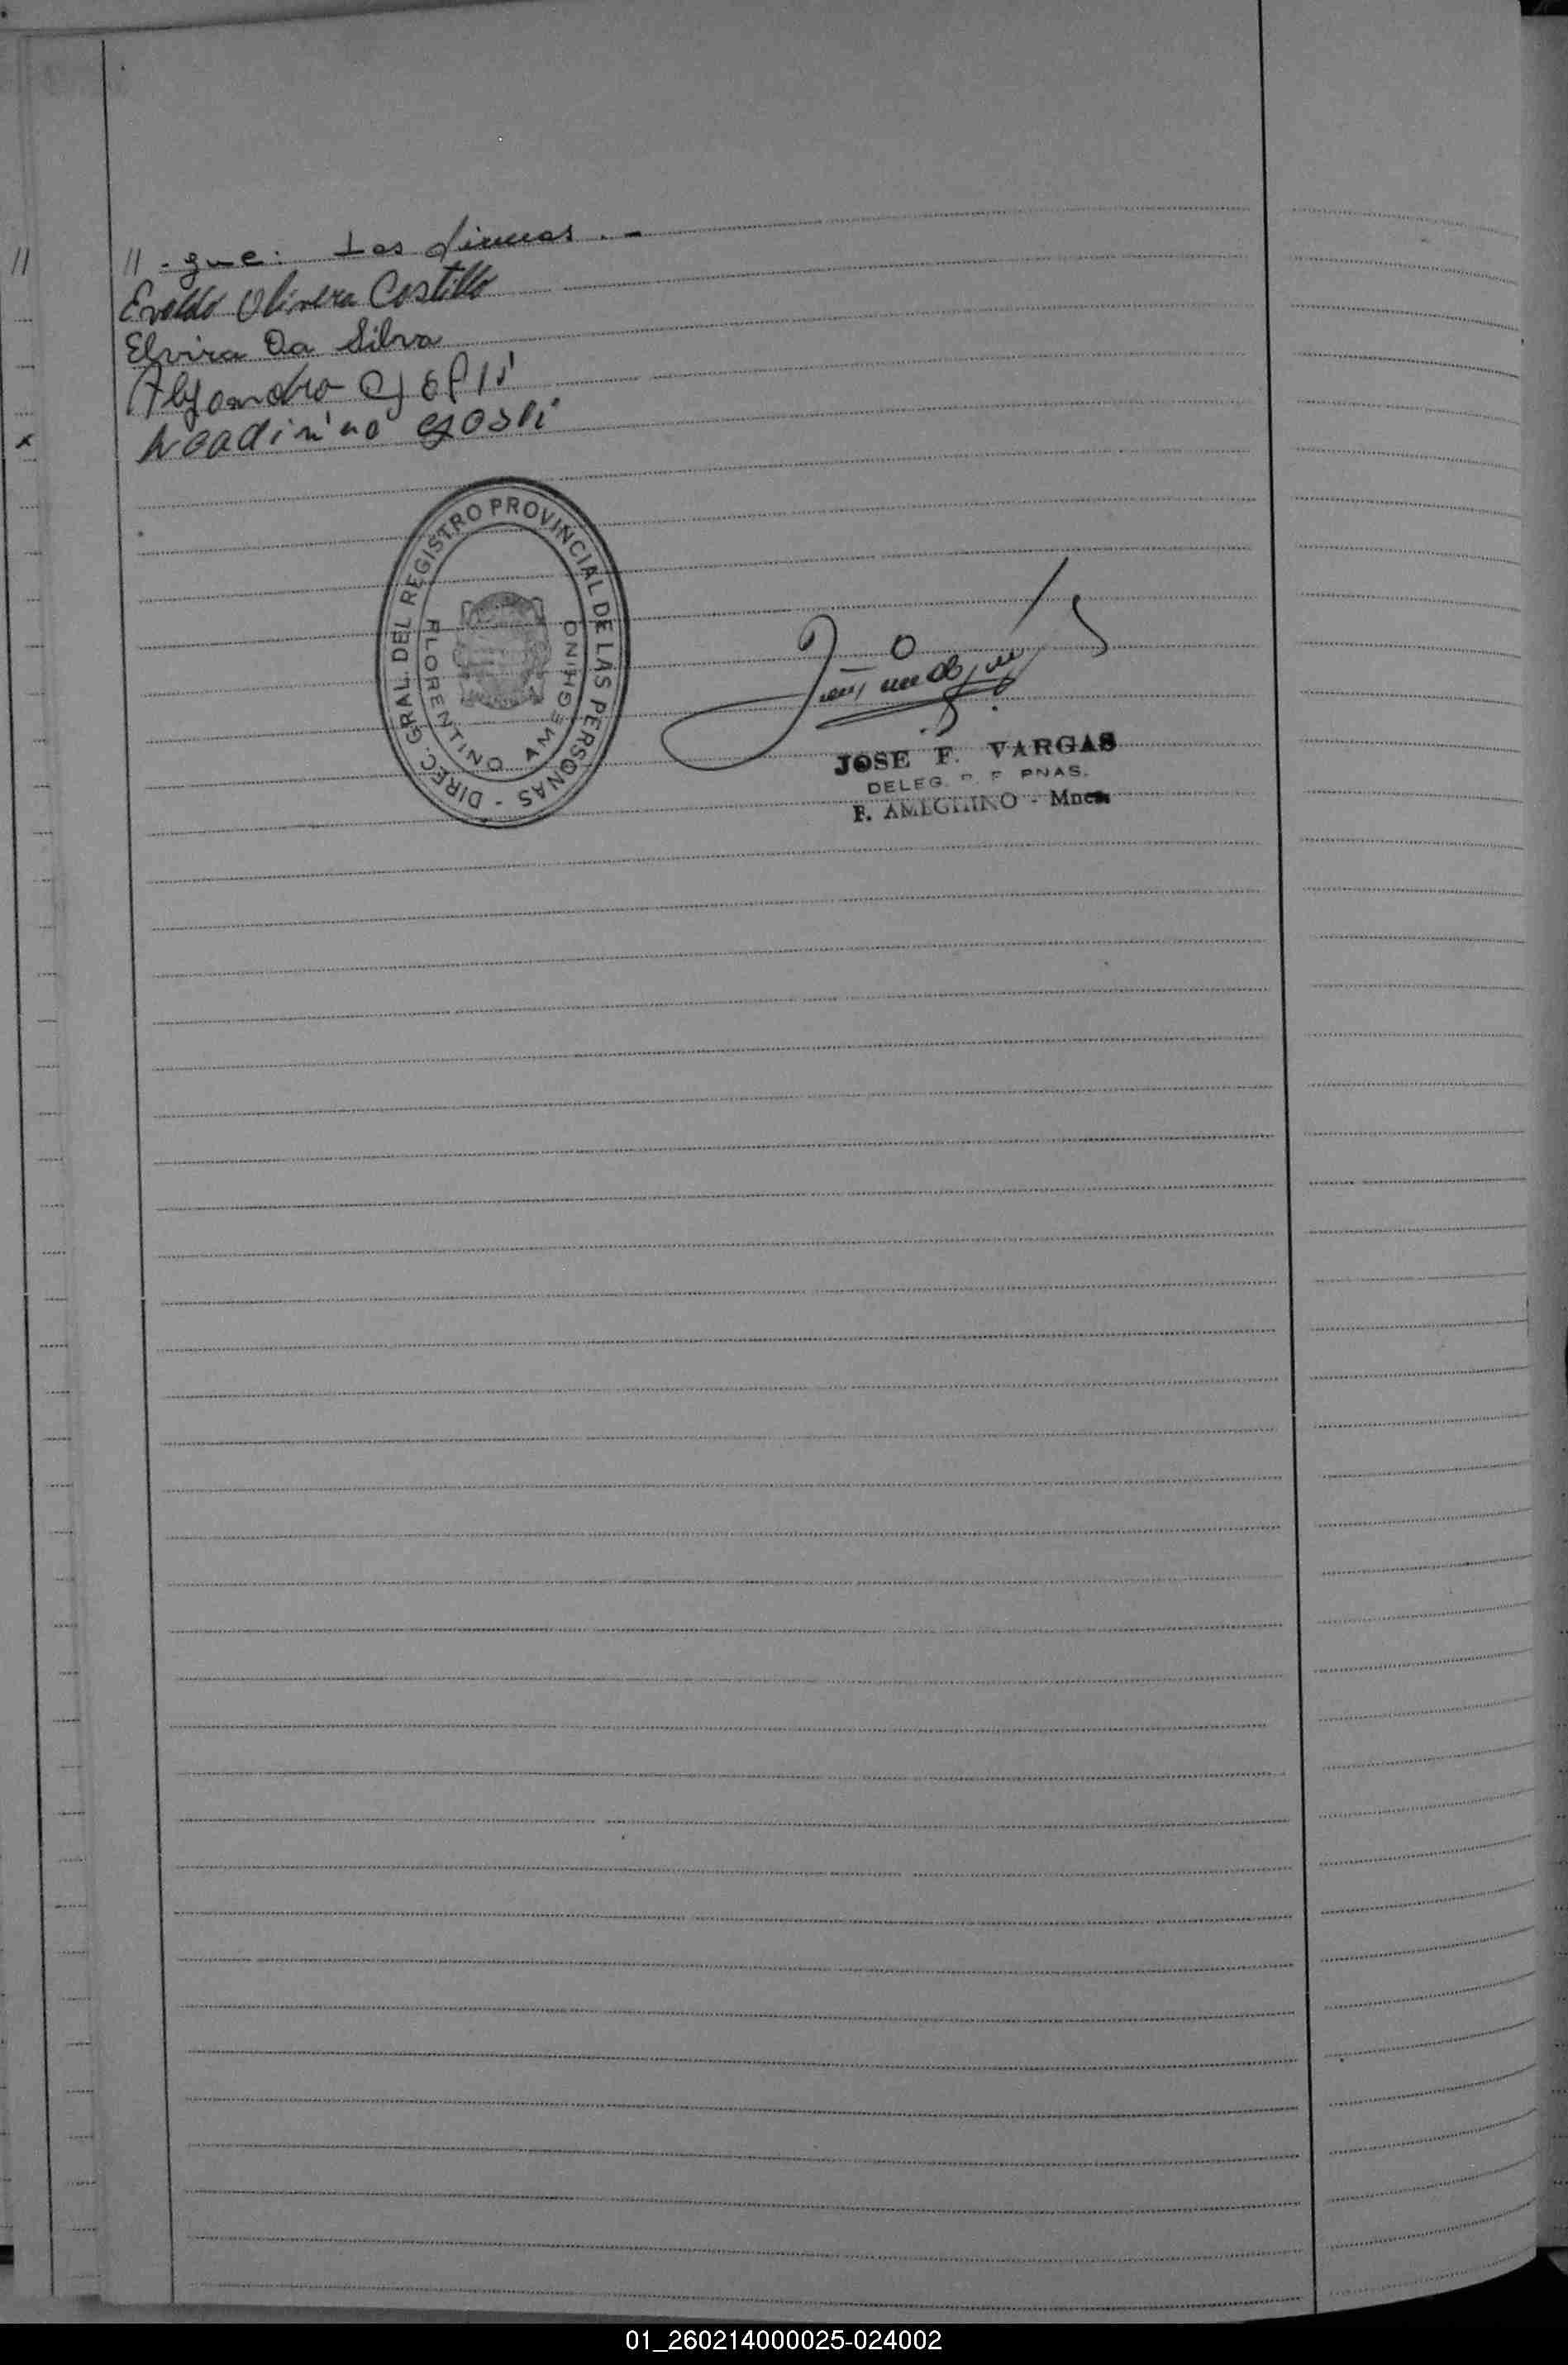 // -gue: Las firmas. -
Evaldo Olivera Castillo
Elvira Da Silva
Alejandro
DIREC. GRAL. DEL REGISTRO PROVINCIAL DE LAS PERSONAS -
FLORENTINO AMEGHINO
JOSE F. VARGAS
DELEG. PNAS.
F. AMEGHINO - Mnes.
01_260214000025-024002